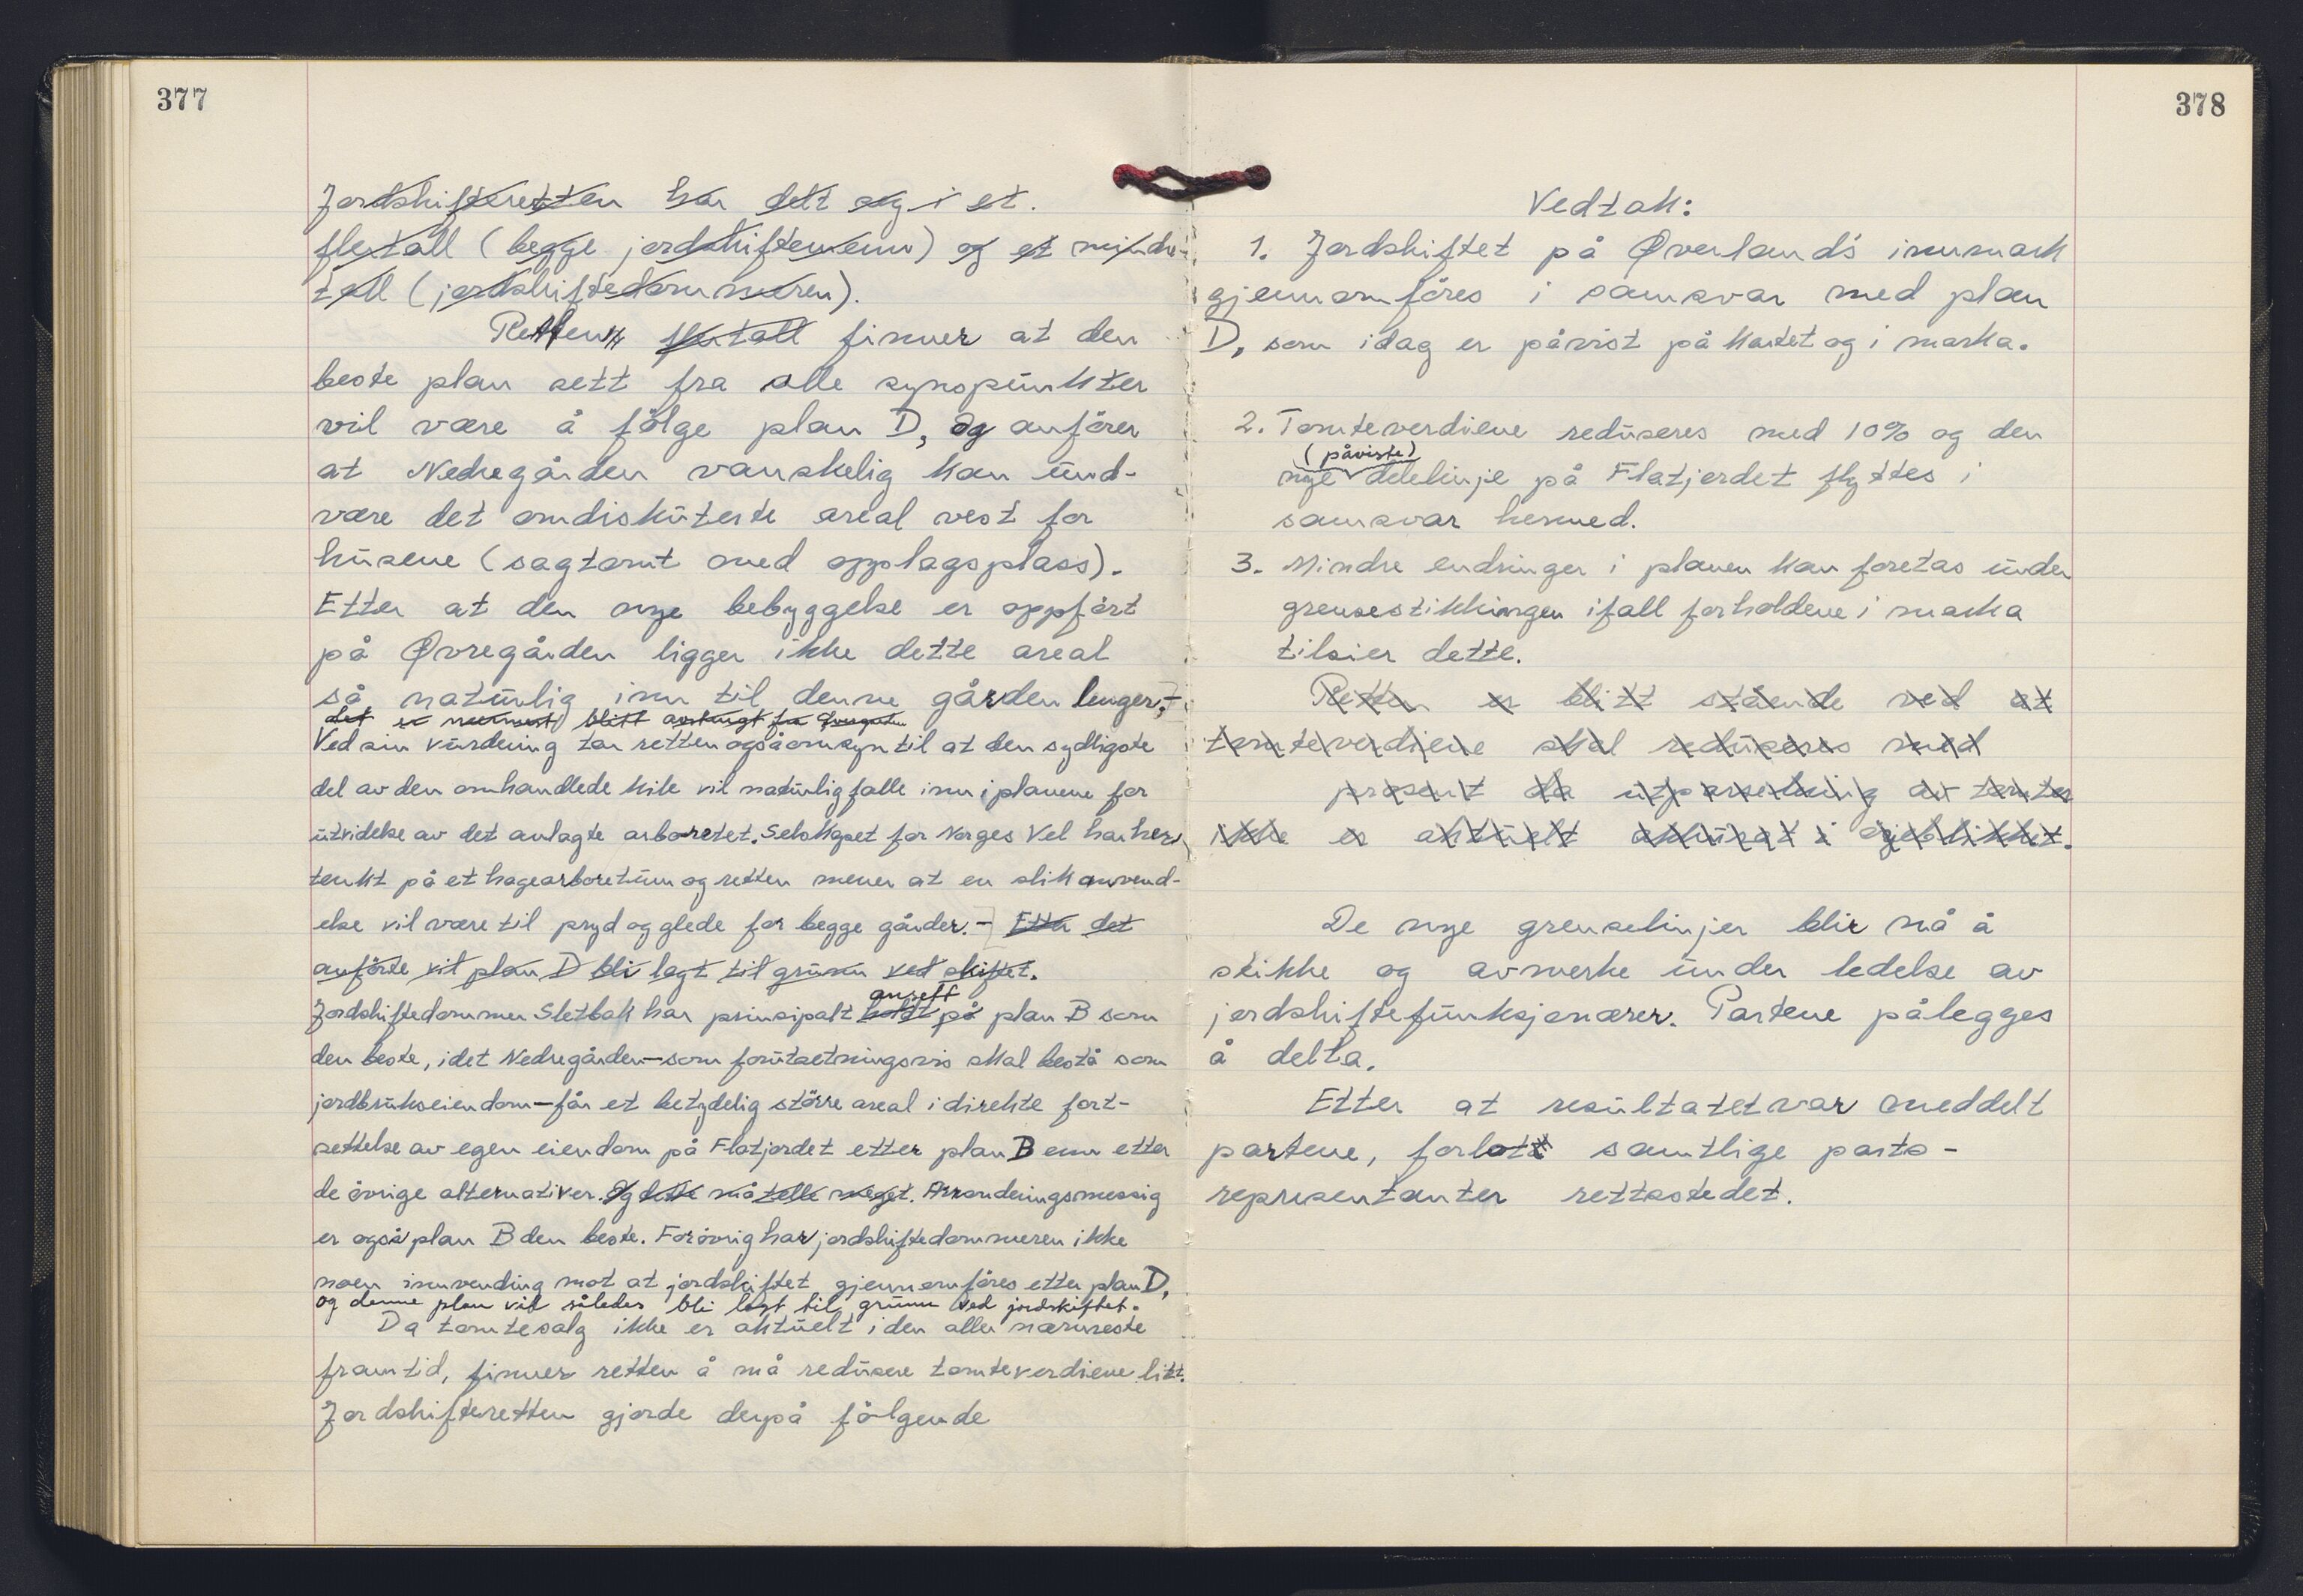 377
Jordskifteretten har delt seg i et
fletall (begge jordskiftemenn) og et mindre-
tall (jordskiftedommeren).
Retten fletall finner at den
beste plan sett fra alle synspunkter
vil være å følge plan D, og anfører
at Nedregården vanskelig kan und-
være det omdiskuterte areal vest for
husene (sagtomt med opplagsplass).
Etter at den nye bebyggelse er oppført
på Øvregården ligger ikke dette areal
så naturlig inn til denne gården lenger,
det er nærmest blitt avstengt fra Øvregården
Ved sin vurdering tar retten også omsyn til at den sydligste
del av den omhandlede kile vil naturlig falle inn i planene for
utvidelse av det anlagte arboretet. Selskapet for Norges Vel har her
tenkt på et hagearboretum og retten mener at en slik anvend-
else vil være til pryd og glede for begge gårder. - Etter det
anførte vil plan D bli lagt til grunn ved skiftet.
ansett
Jordskiftedommer Sletbak har prinsipalt holdt på plan B som
den beste, idet Nedregården - som forutsetningsvis skal bestå som
jordbrukseiendom - får et betydelig større areal i direkte fort-
settelse av egen eiendom på Flatjordet etter plan B enn etter
de øvrige alternativer. Og dette må telle meget. Arronderingsmessig
er også plan B den beste. Forøvrig har jordskiftedommeren ikke
noen innvending mot at jordskiftet gjennomføres etter plan D,
og denne plan vil således bli lagt til grunn ved jordskiftet.
Da tomtesalg ikke er aktuelt i den aller nærmeste
framtid, finner retten å må redusere tomteverdiene litt.
Jordskifteretten gjorde derpå følgende
378
Vedtak:
1. Jordskiftet på Øverland's innmark
gjennomføres i samsvar med plan
D, som idag er påvist på kartet og i marka.
2. Tomteverdiene reduseres med 10% og den
(påviste)
nye delelinje på Flatjordet flyttes i
samsvar hermed.
3. Mindre endringer i planen kan foretas under
grensestikkingen ifall forholdene i marka
tilsier dette.
Retten er blitt stående ved at
tomteverdiene skal reduseres med
prosent da utparsellering av tomter
ikke er aktuelt akkurat i øjeblikket.
De nye grenselinjer blir nå å
stikke og avmerke under ledelse av
jordskiftefunksjonærer. Partene pålegges
å delta.
Etter at resultatet var meddelt
partene, forlot samtlige parts-
representanter rettsstedet.